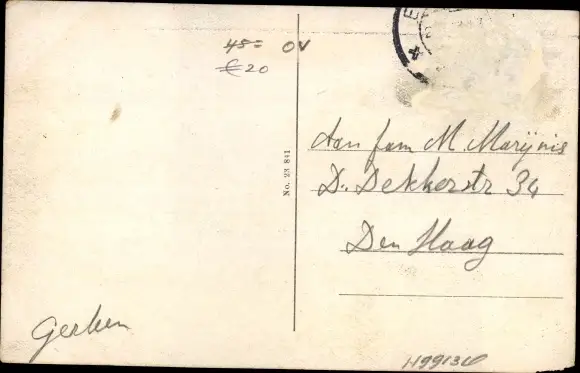 45= OV
€20
No. 23 841
Aan fam M. Marijnis
D. Dekkerstr 34
Den Haag
Gerben